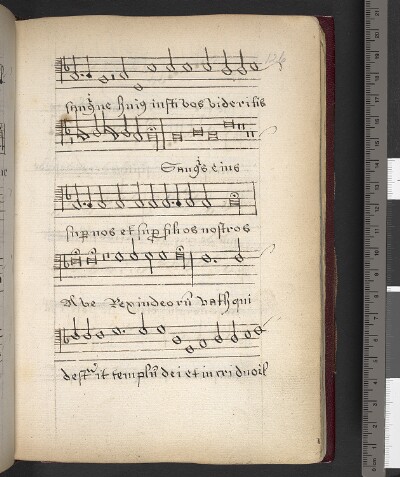 sanq̃ne huiꝰ iusti vos videritis
Sangꝰs eius
suꝑ nos et suꝑ filios nostros
Ave Rex iudeorũ vath qui
destrͧit templũ dei et in triduo il